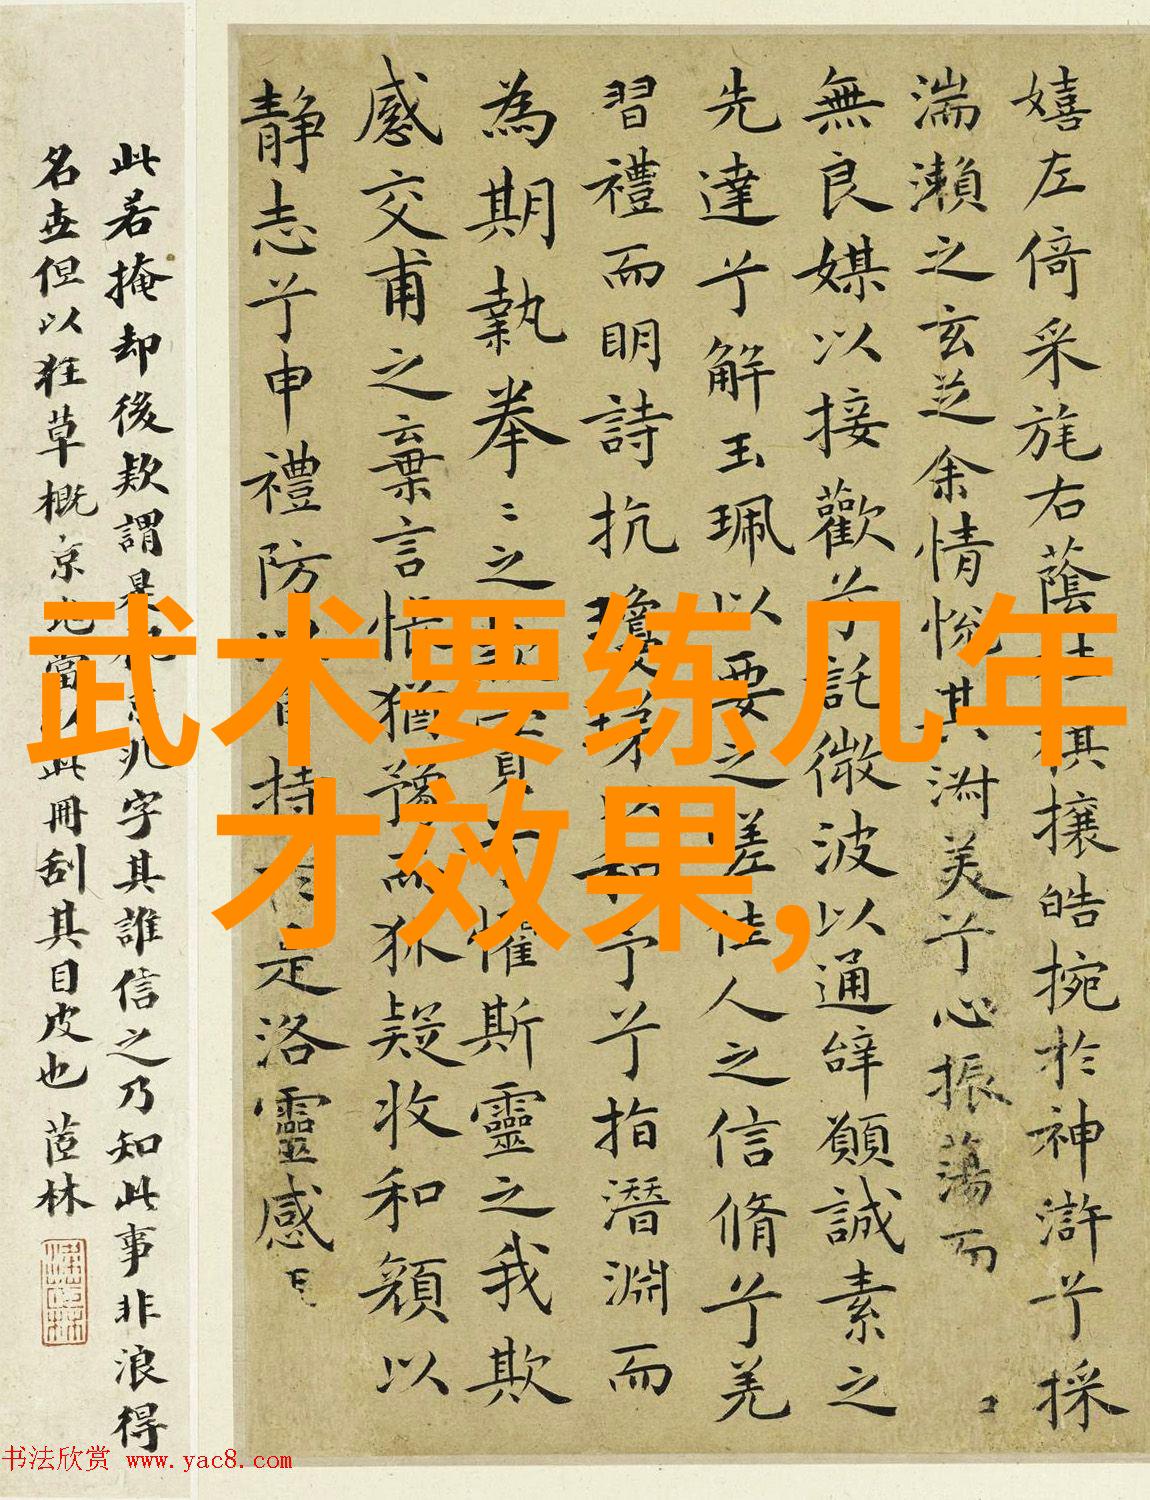 嬉左倚采旄右蔭棋攘皓捥於神滸兮採
湍瀬之玄芝余情悅其淑美兮心振蕩而
無良媒以接歡兮託微波以通辝願誠素之
先達兮解玉珮以要之嗟佳人之信脩兮羌
習禮而明詩抗瓊珶以和予兮指潜淵而
為期執拳〻之實兮懼斯靈之我欺
感交甫之棄言悵猶豫而狐疑收和顏以
静志兮申禮防以自持於是洛靈感
此若掩却後欵謂是京兆字其誰信之乃知此事非浪得
名世但以狂草概京兆當以此冊刮其目皮也 茝林
武术要练几年
才效果,
书法欣赏 www.yac8.com